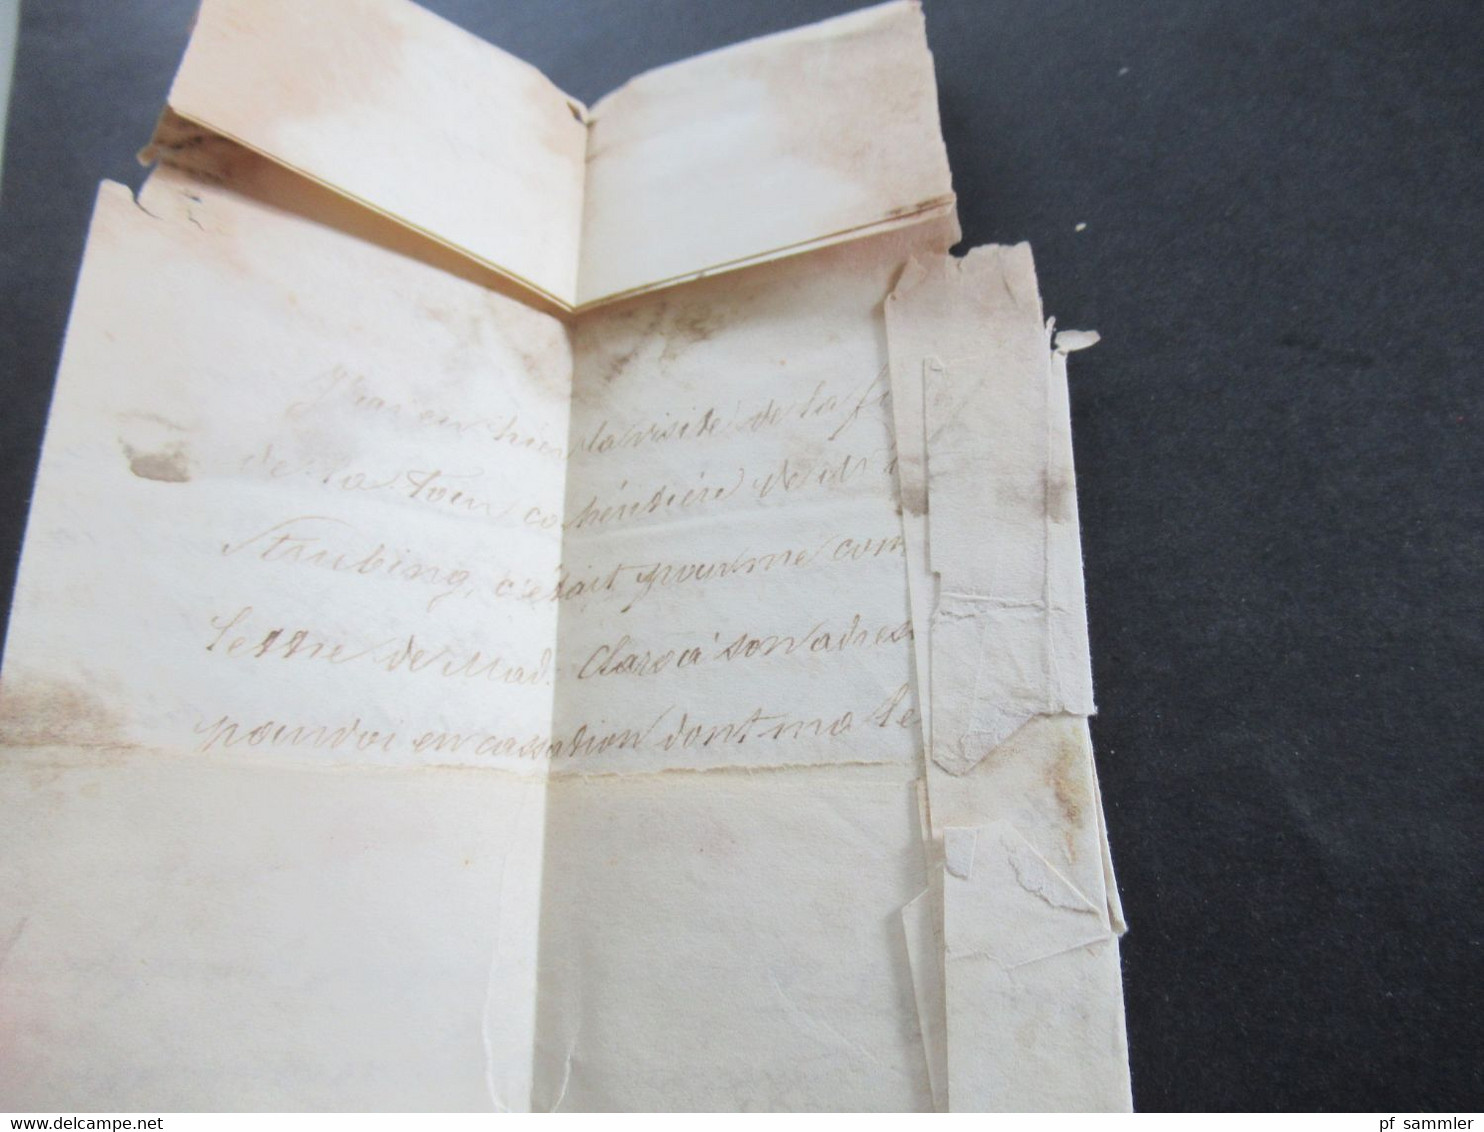 J'ai eu hier la visite de la f
de la tour cohéritière de
Strubing, c'était pour me com
lettre de Mad. Claro à son adres
pourvoi en cassation dont ma le
pf sammler